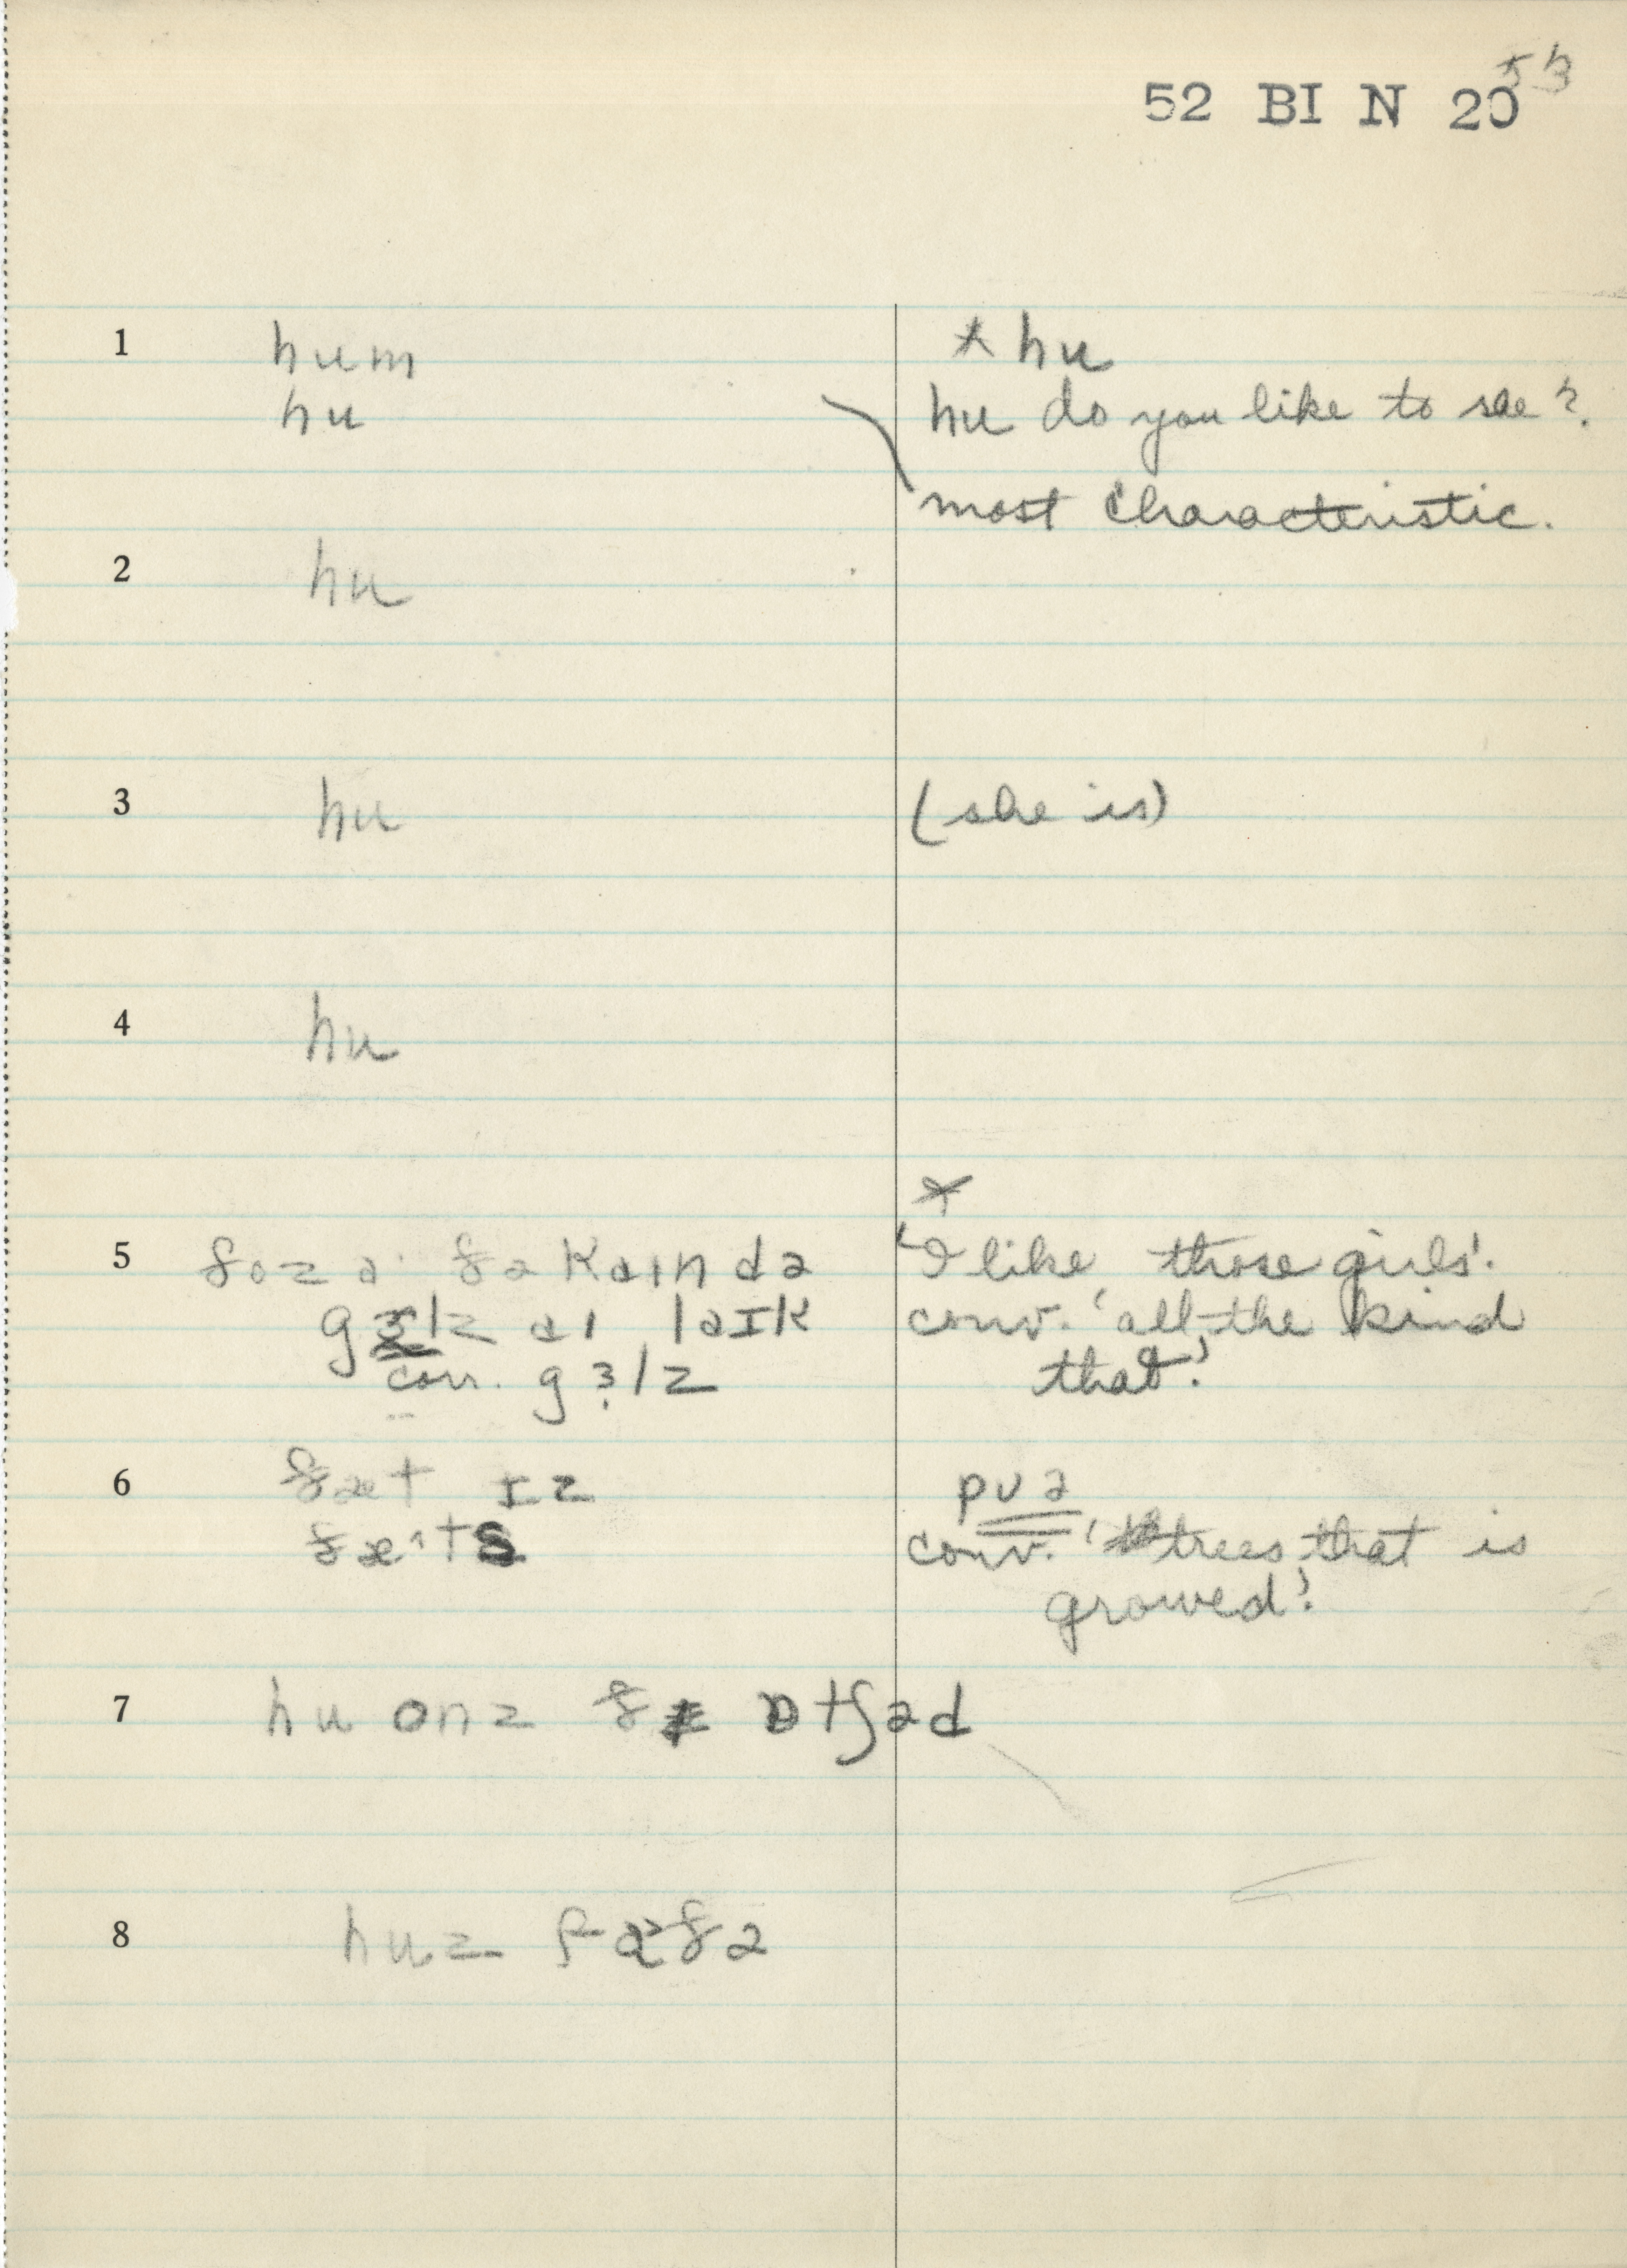 53
52 BI N 20
1 hum * hu
hu hu do you like to see?
most characteristic.
2 hu
3 hu (she is)
4 hu
*
5 ðoz ðə kaɪnd ə 'I like those girls'.
gɜlz aɪ laɪk conv. 'all the kind
corr. gɜlz that'.
6 ðæt ɪz pʊə
ðæ^ts conv. 'trees that is
growed'.
7 hu onz ðɪ ɒtʃəd
8 huz fɑðə